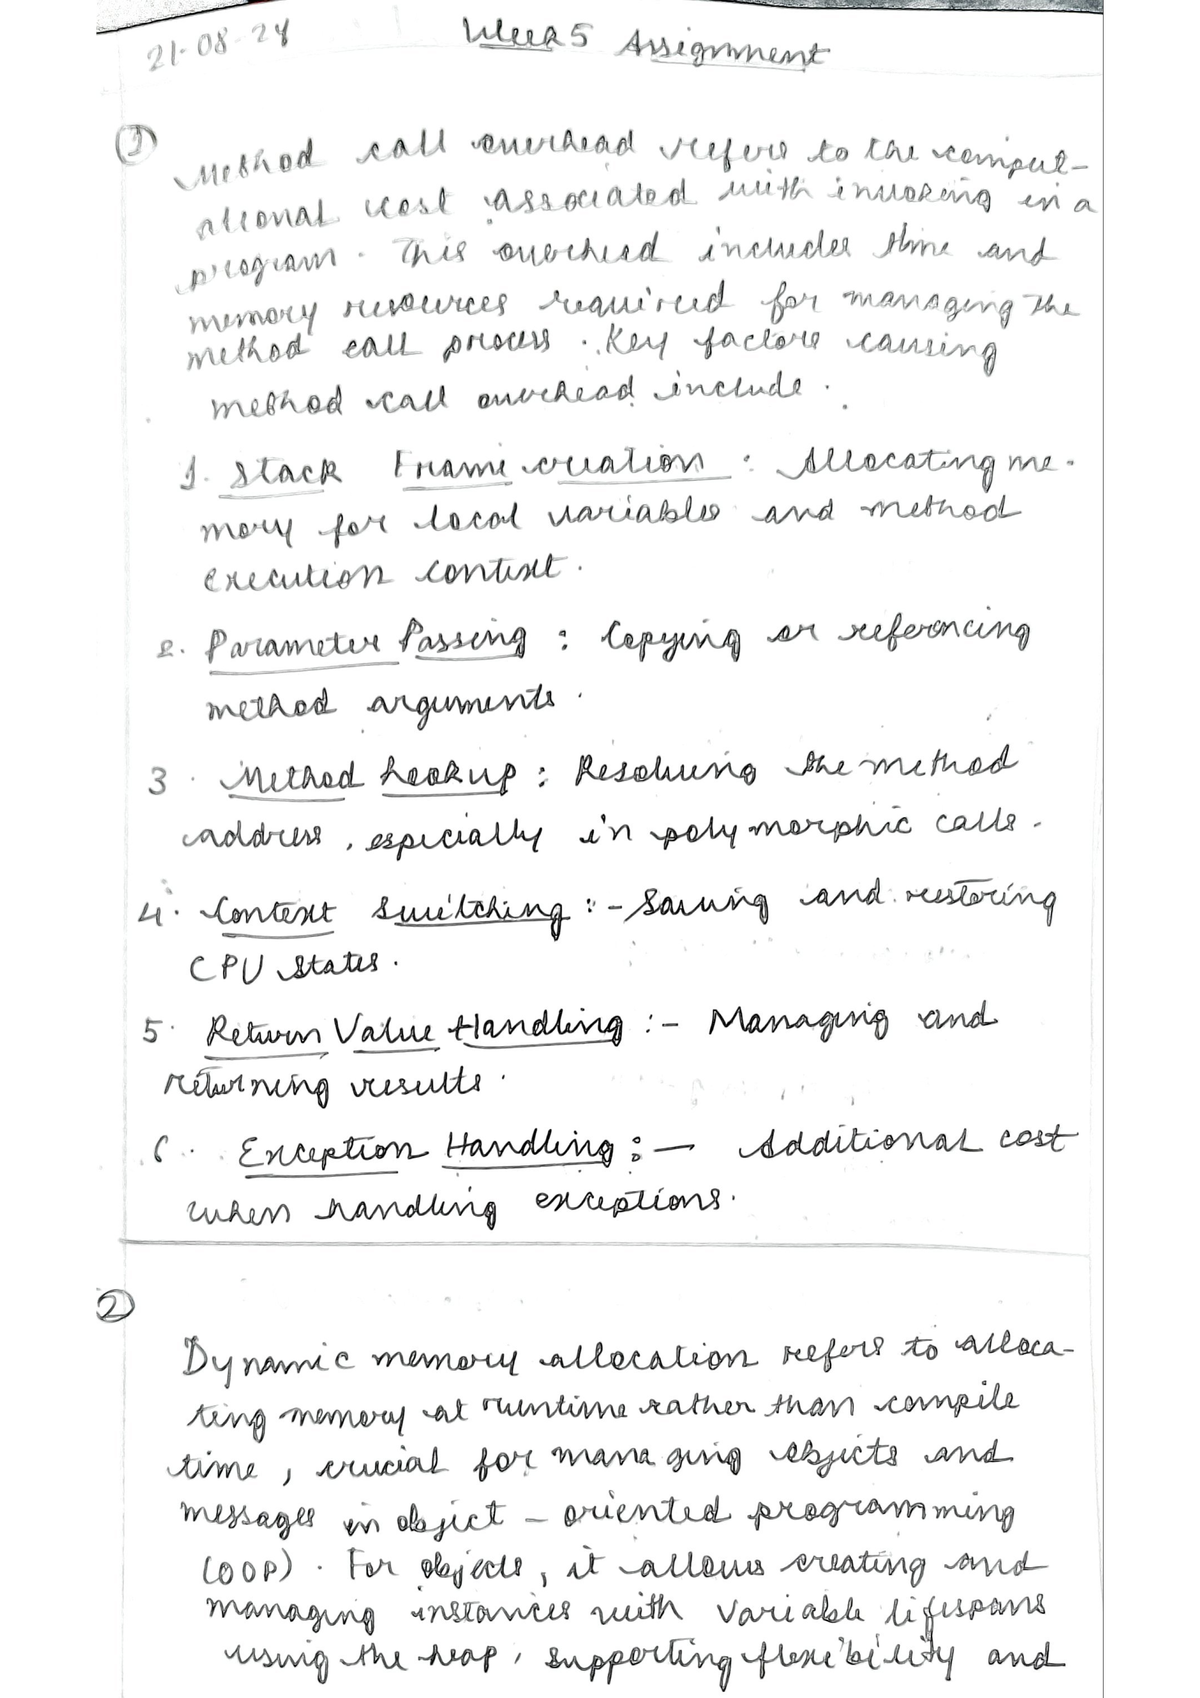 21-08-24
Week 5 Assignment
1
Method call overhead refers to the comput-
ational cost associated with invoking in a
program. This overhead includes time and
memory resources required for managing the
method call process. Key factors causing
method call overhead include.
1. Stack Frame creation : Allocating me-
mory for local variables and method
execution context.
2. Parameter Passing : Copying or referencing
method arguments.
3. Method Lookup : Resolving the method
address, especially in polymorphic calls.
4. Context Switching :- Saving and restoring
CPU states.
5. Return Value Handling :- Managing and
returning results.
6. Exception Handling :- Additional cost
when handling exceptions.
2
Dynamic memory allocation refers to alloca-
ting memory at runtime rather than compile
time, crucial for managing objects and
messages in object - oriented programming
(OOP). For objects, it allows creating and
managing instances with variable lifespans
using the heap, supporting flexibility and